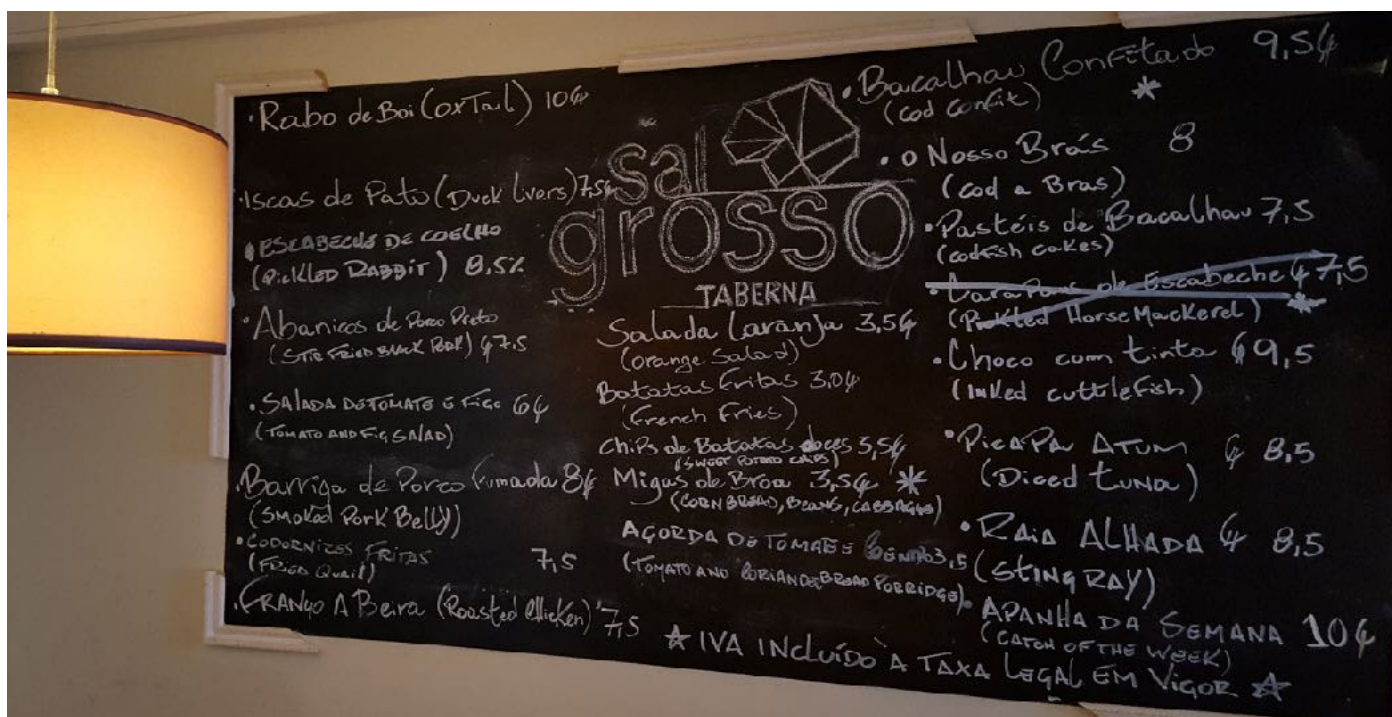 • Rabo de Boi (oxTail) 10€
• Iscas de Pato (Duck Livers) 7,5€
• ESCABECHE DE COELHO
(PickLED RABBIT) 8,5€
• Abanicos de Porco Preto
(STIR FRIED BLACK PORK) €7.5
• SALADA DE TOMATE E FIGO 6€
(TOMATO AND FIG SALAD)
• Barriga de Porco fumada 8€
(SMOKED PORK BELLY)
• CODORNIZES FRITAS 7,5
(FRIED QUAIL)
• FRANGO A Beira (Roasted Chicken) 7,5
sal
grosso
TABERNA
Salada Laranja 3,5€
(orange Salad)
Batatas Fritas 3,0€
(French Fries)
Chips de Batatas doces 5,5€
(SWEET POTATO CHIPS)
Migas de Broa 3,5€ *
(CORN BREAD, BEANS, CABBAGGE)
AÇORDA DE TOMATE E COENTRO 3,5
(TOMATO AND CORIANDER BREAD PORRIDGE)
• Bacalhau Confitado 9,5€
(cod confit) *
• O Nosso Brás 8
(cod a Bras)
• Pastéis de Bacalhau 7,5
(codfish cakes)
• Carapaus de Escabeche € 7,5
(Pickled Horse Mackerel) *
• Choco com tinta € 9,5
(Inked cuttlefish)
• PICAPA ATUM € 8,5
(Diced tuna)
• RAIA ALHADA € 8,5
(STING RAY)
• APANHA DA SEMANA 10€
(CATCH OF THE WEEK)
☆ IVA INCLUÍDO À TAXA LEGAL EM VIGOR ☆